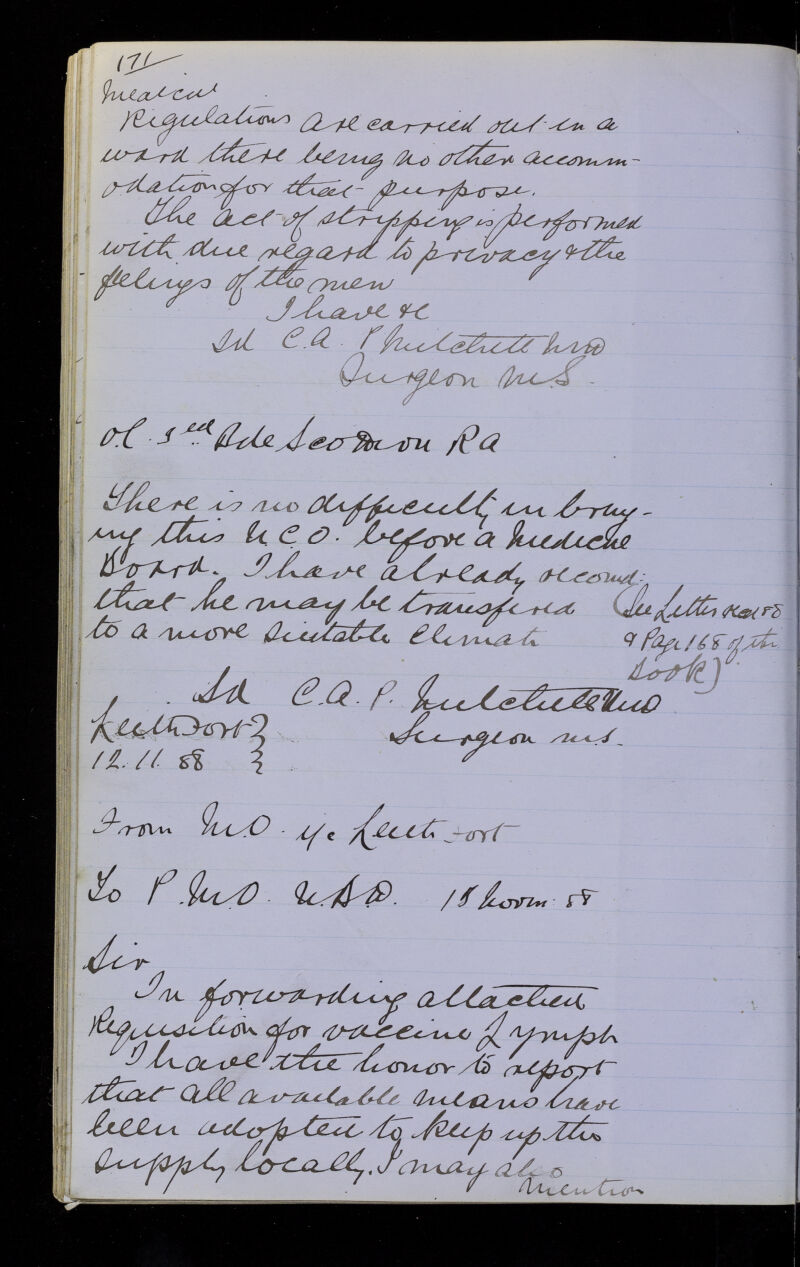 171
Medical
Regulations are carried out in a
ward there being no other accomm-
odation for that purpose.
The act of stripping is performed
with due regard to privacy & the
feelings of the men
I have &c
Sd C.A.P. Mitchell MD
Surgeon M.S.
O.C. 3rd Bde Sco Divn RA
There is no difficulty in bring-
ing this N.C.O. before a Medical
Board. I have already recomd:
that he may be transferred
to a more suitable Climate
(See Letter 88
& Page 168 of this
Book)
Sd C.A.P. Mitchell MD
Surgeon M.S.
Leith Fort
12.11.88
From M.O. i/c Leith Fort
To P.M.O. N.B.D. 15 Novm 88
Sir
In forwarding attached
Requisition for vaccine Lymph
I have the honor to report
that all available means have
been adopted to keep up the
supply locally. I may also
mention